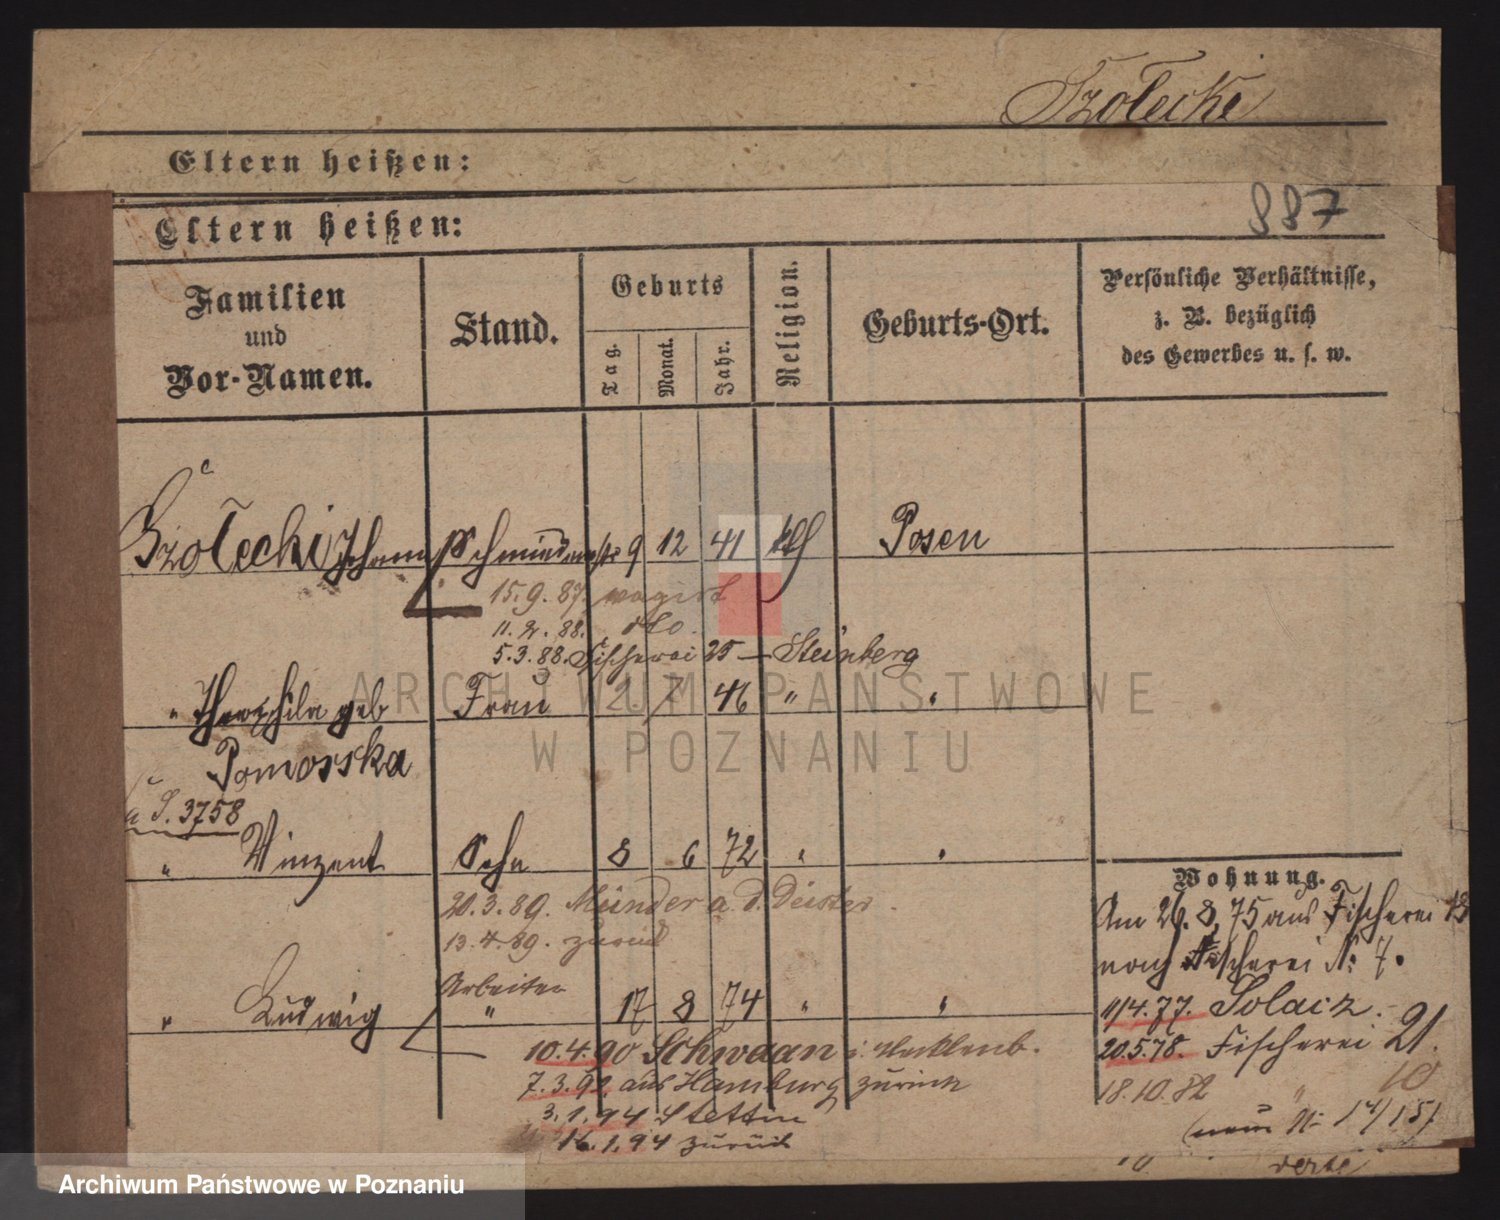 Szołecki
Eltern heißen:
887
Eltern heißen:
Familien und Vor-Namen.
Stand.
Geburts
Tag.
Monat.
Jahr.
Religion.
Geburts-Ort.
Persönliche Verhältnisse,
z. B. bezüglich
des Gewerbes u. s. w.
Szołecki Johann Schmiedemstr 9 12 41 kth Posen
15.9.87.
11.2.88. dto.
5.3.88. Fischerei 25 — Steinberg
" Theophila geb Frau 2 7 46 " "
Pomorska
S. 3758
" Vinzent Sohn 8 6 72 " "
20.3.89. Münder a. d. Deister.
13.4.89. zurück
Arbeiter
" Ludwig " 17 8 74 " "
10.4.90 Schwaan i. Mecklenb.
7.3.92 aus Hamburg zurück
3.1.94 Stettin
16.1.94 zurück
Wohnung.
Am 26.8.75 aus Fischerei 13
nach Fischerei N: 7.
11/4.77. Solacz.
20.5.78. Fischerei 21.
18.10.82 " 10
ARCHIWUM PAŃSTWOWE
W POZNANIU
Archiwum Państwowe w Poznaniu